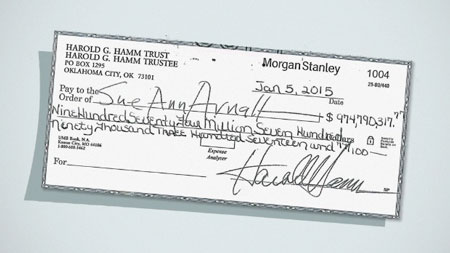 HAROLD G. HAMM TRUST
HAROLD G. HAMM TRUSTEE
PO BOX 1295
OKLAHOMA CITY, OK 73101
Morgan Stanley 1004
25-80/440
Jan 5, 2015
Date
Pay to the
Order of Sue Ann Arnall $ 974,790,317.77
Nine Hundred Seventy Four Myllion Seven Hundred
Ninety Thousand Three Hundred Seventeen and 77/100
UMB Bank, N.A.
Kansas City, MO
Expense
Analyzer
For
Harold Hamm